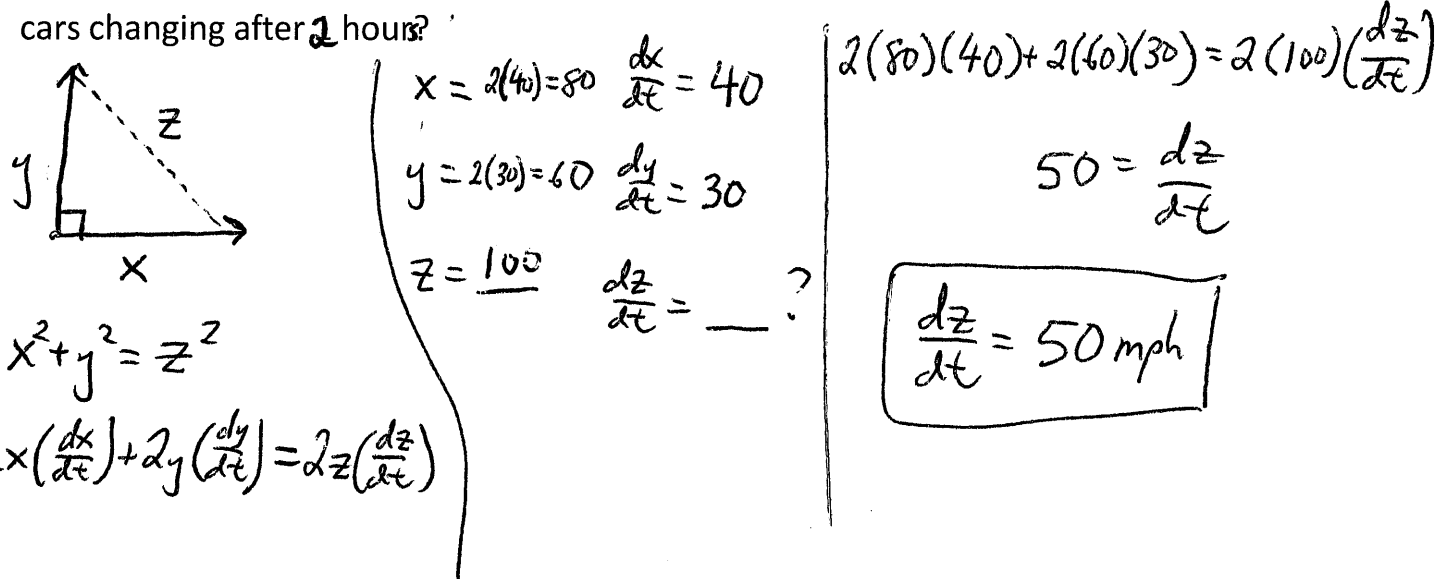 cars changing after 2 hours?
z
y
x
x² + y² = z²
x(dx/dt) + 2y(dy/dt) = 2z(dz/dt)
x = 2(40) = 80 dx/dt = 40
y = 2(30) = 60 dy/dt = 30
z = 100 dz/dt = __ ?
2(80)(40) + 2(60)(30) = 2(100)(dz/dt)
50 = dz/dt
dz/dt = 50 mph